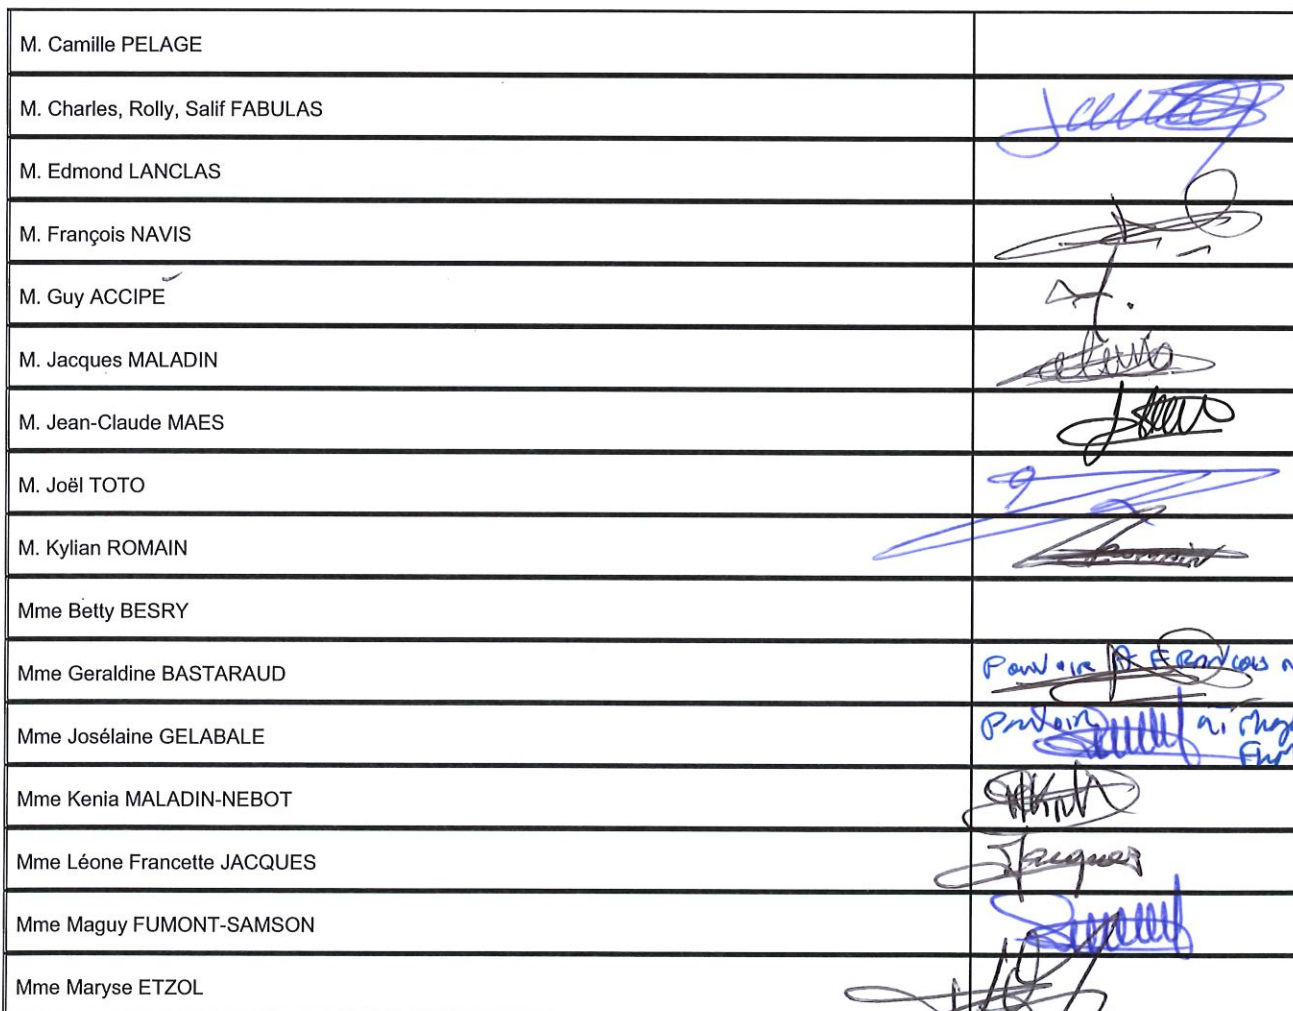 M. Camille PELAGE
M. Charles, Rolly, Salif FABULAS
M. Edmond LANCLAS
M. François NAVIS
M. Guy ACCIPE
M. Jacques MALADIN
M. Jean-Claude MAES
M. Joël TOTO
M. Kylian ROMAIN
Romain
Mme Betty BESRY
Mme Geraldine BASTARAUD
Mme Josélaine GELABALE
Mme Kenia MALADIN-NEBOT
Mme Léone Francette JACQUES
Jacques
Mme Maguy FUMONT-SAMSON
Mme Maryse ETZOL